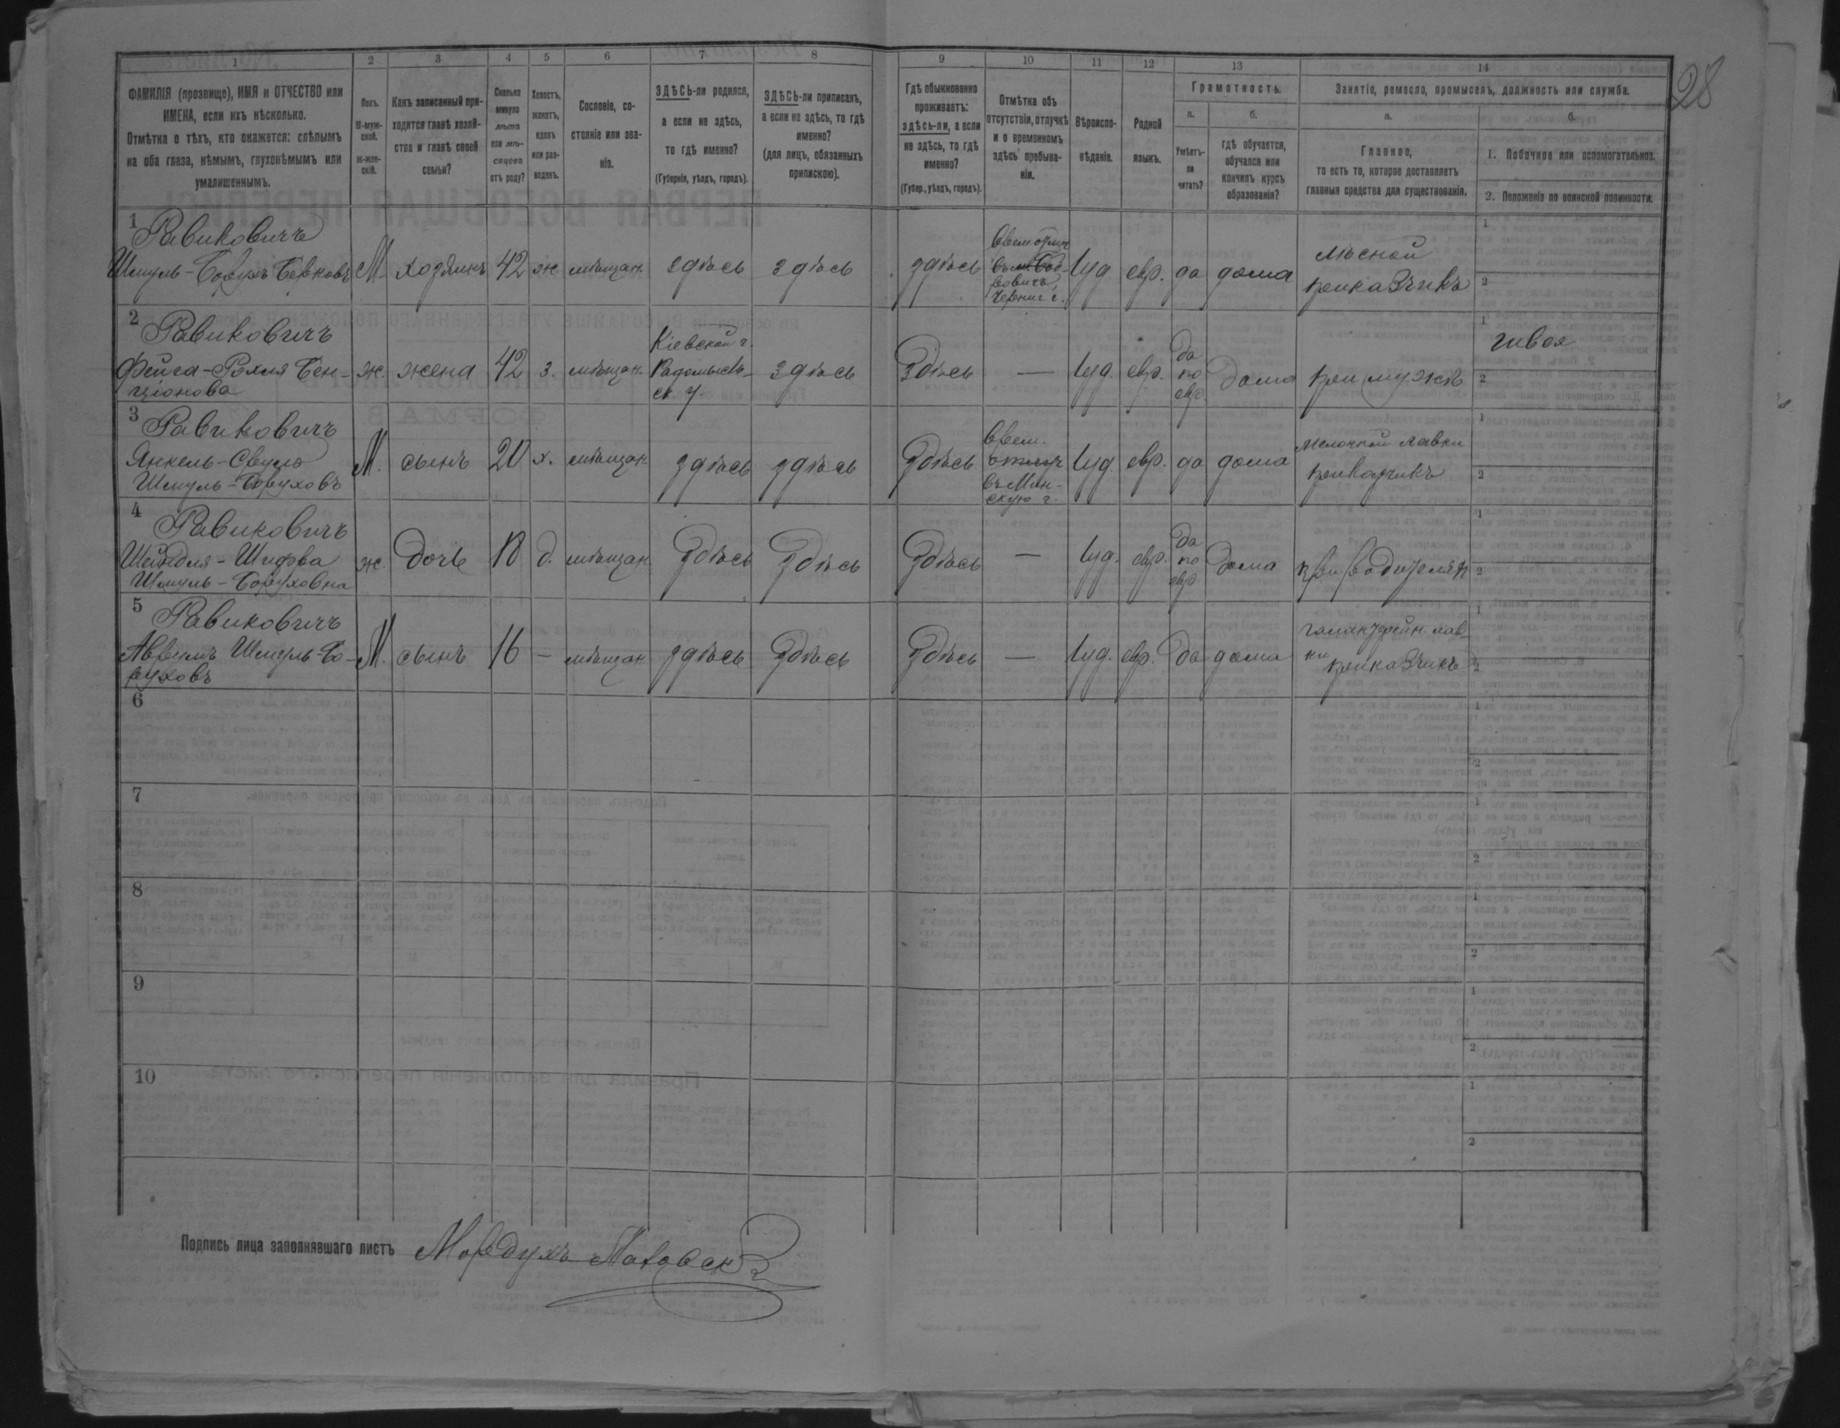 28
1 2 3 4 5 6 7 8 9 10 11 12 13 14
ФАМИЛІЯ (прозвище), ИМЯ и ОТЧЕСТВО или
ИМЕНА, если ихъ нѣсколько.
Отмѣтка о тѣхъ, кто окажется: слѣпымъ
на оба глаза, нѣмымъ, глухонѣмымъ или
умалишеннымъ.
Полъ.
М-муж-
ской.
Ж-жен-
скій.
Какъ записанный при-
ходится главѣ хозяй-
ства и главѣ своей
семьи?
Сколько
минуло
лѣтъ
или мѣ-
сяцевъ
отъ роду?
Холостъ,
женатъ,
вдовъ
или раз-
веденъ.
Сословіе, со-
стояніе или зва-
ніе.
ЗДѢСЬ-ли родился,
а если не здѣсь,
то гдѣ именно?
(Губернія, уѣздъ, городъ).
ЗДѢСЬ-ли приписанъ,
а если не здѣсь, то гдѣ
именно?
(для лицъ, обязанныхъ
припискою).
Гдѣ обыкновенно
проживаетъ:
здѣсь-ли, а если
не здѣсь, то гдѣ
именно?
(Губер., уѣздъ, городъ).
Отмѣтка объ
отсутствіи, отлучкѣ
и о временномъ
здѣсь пребыва-
ніи.
Вѣроиспо-
вѣданіе.
Родной
языкъ.
Грамотность.
а.
Умѣетъ-
ли
читать?
б.
гдѣ обучается,
обучался или
кончилъ курсъ
образованія?
Занятіе, ремесло, промыселъ, должность или служба.
а.
Главное,
то есть то, которое доставляетъ
главныя средства для существованія.
б.
1. Побочное или вспомогательное.
2. Положеніе по воинской повинности.
1
Равиковичъ
Шмуль-Борухъ Берковъ М. хозяинъ 42 ж мѣщан. здѣсь здѣсь здѣсь
Черниг. г.
Іуд. евр. да дома
лѣсной
приказчикъ
1
2
2
Равиковичъ
Фейга-Рохля Бен-
ціонова
ж. жена 42 з. мѣщан.
Кіевской г.
Радомысль-
ск. у.
здѣсь Здѣсь — Іуд. евр.
да
по
евр
дома при мужѣ
1
2
3
Равиковичъ
Янкель-
Шмуль-Боруховъ
М. сынъ 20 х. мѣщан здѣсь здѣсь Здѣсь
въ Мин-
скую г.
Іуд. евр. да дома
мелочной лавки
приказчикъ
1
2
4
Равиковичъ
Шейндля-Шифра
Шмуль-Боруховна
ж дочь 18 д. мѣщан. Здѣсь Здѣсь Здѣсь — Іуд. евр.
да
по
евр
дома при родителях
1
2
5
Равиковичъ
Шмуль-Бо-
руховъ
М. сынъ 16 — мѣщан здѣсь Здѣсь Здѣсь — Іуд. евр. да дома
галантерейн. лав
ки приказчикъ
1
2
6
1
2
7
1
2
8
1
2
9
1
2
10
1
2
Подпись лица заполнявшаго листъ Мордухъ